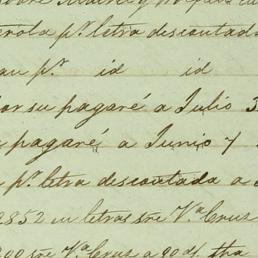 letra descontada
pr. id id
su pagaré á Julio 3
pagaré á Junio 7
pr. letra descontada a
2852 in letras sre Va. Cruz
sre Va. Cruz a 90 d/. fha